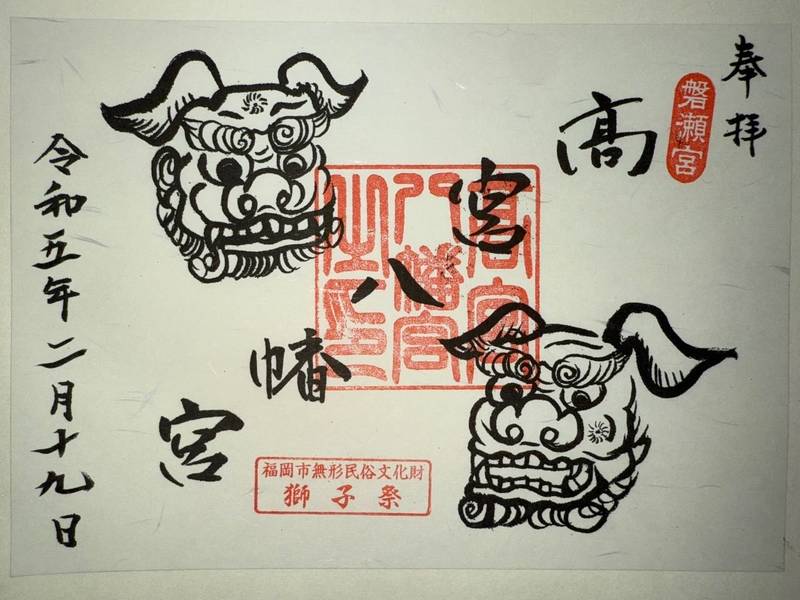 奉拝
磐瀬宮
高宮八幡宮
高宮
八幡宮
之印
福岡市無形民俗文化財
獅子祭
令和五年二月十九日